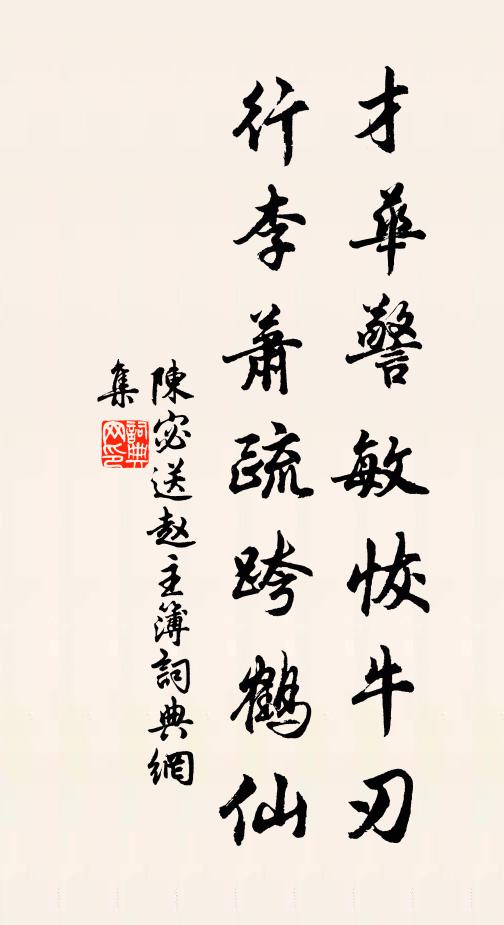 才華警敏恢牛刃
行李蕭疏跨鶴仙
陳宓送赵主簿詞典網
集
詞典网印